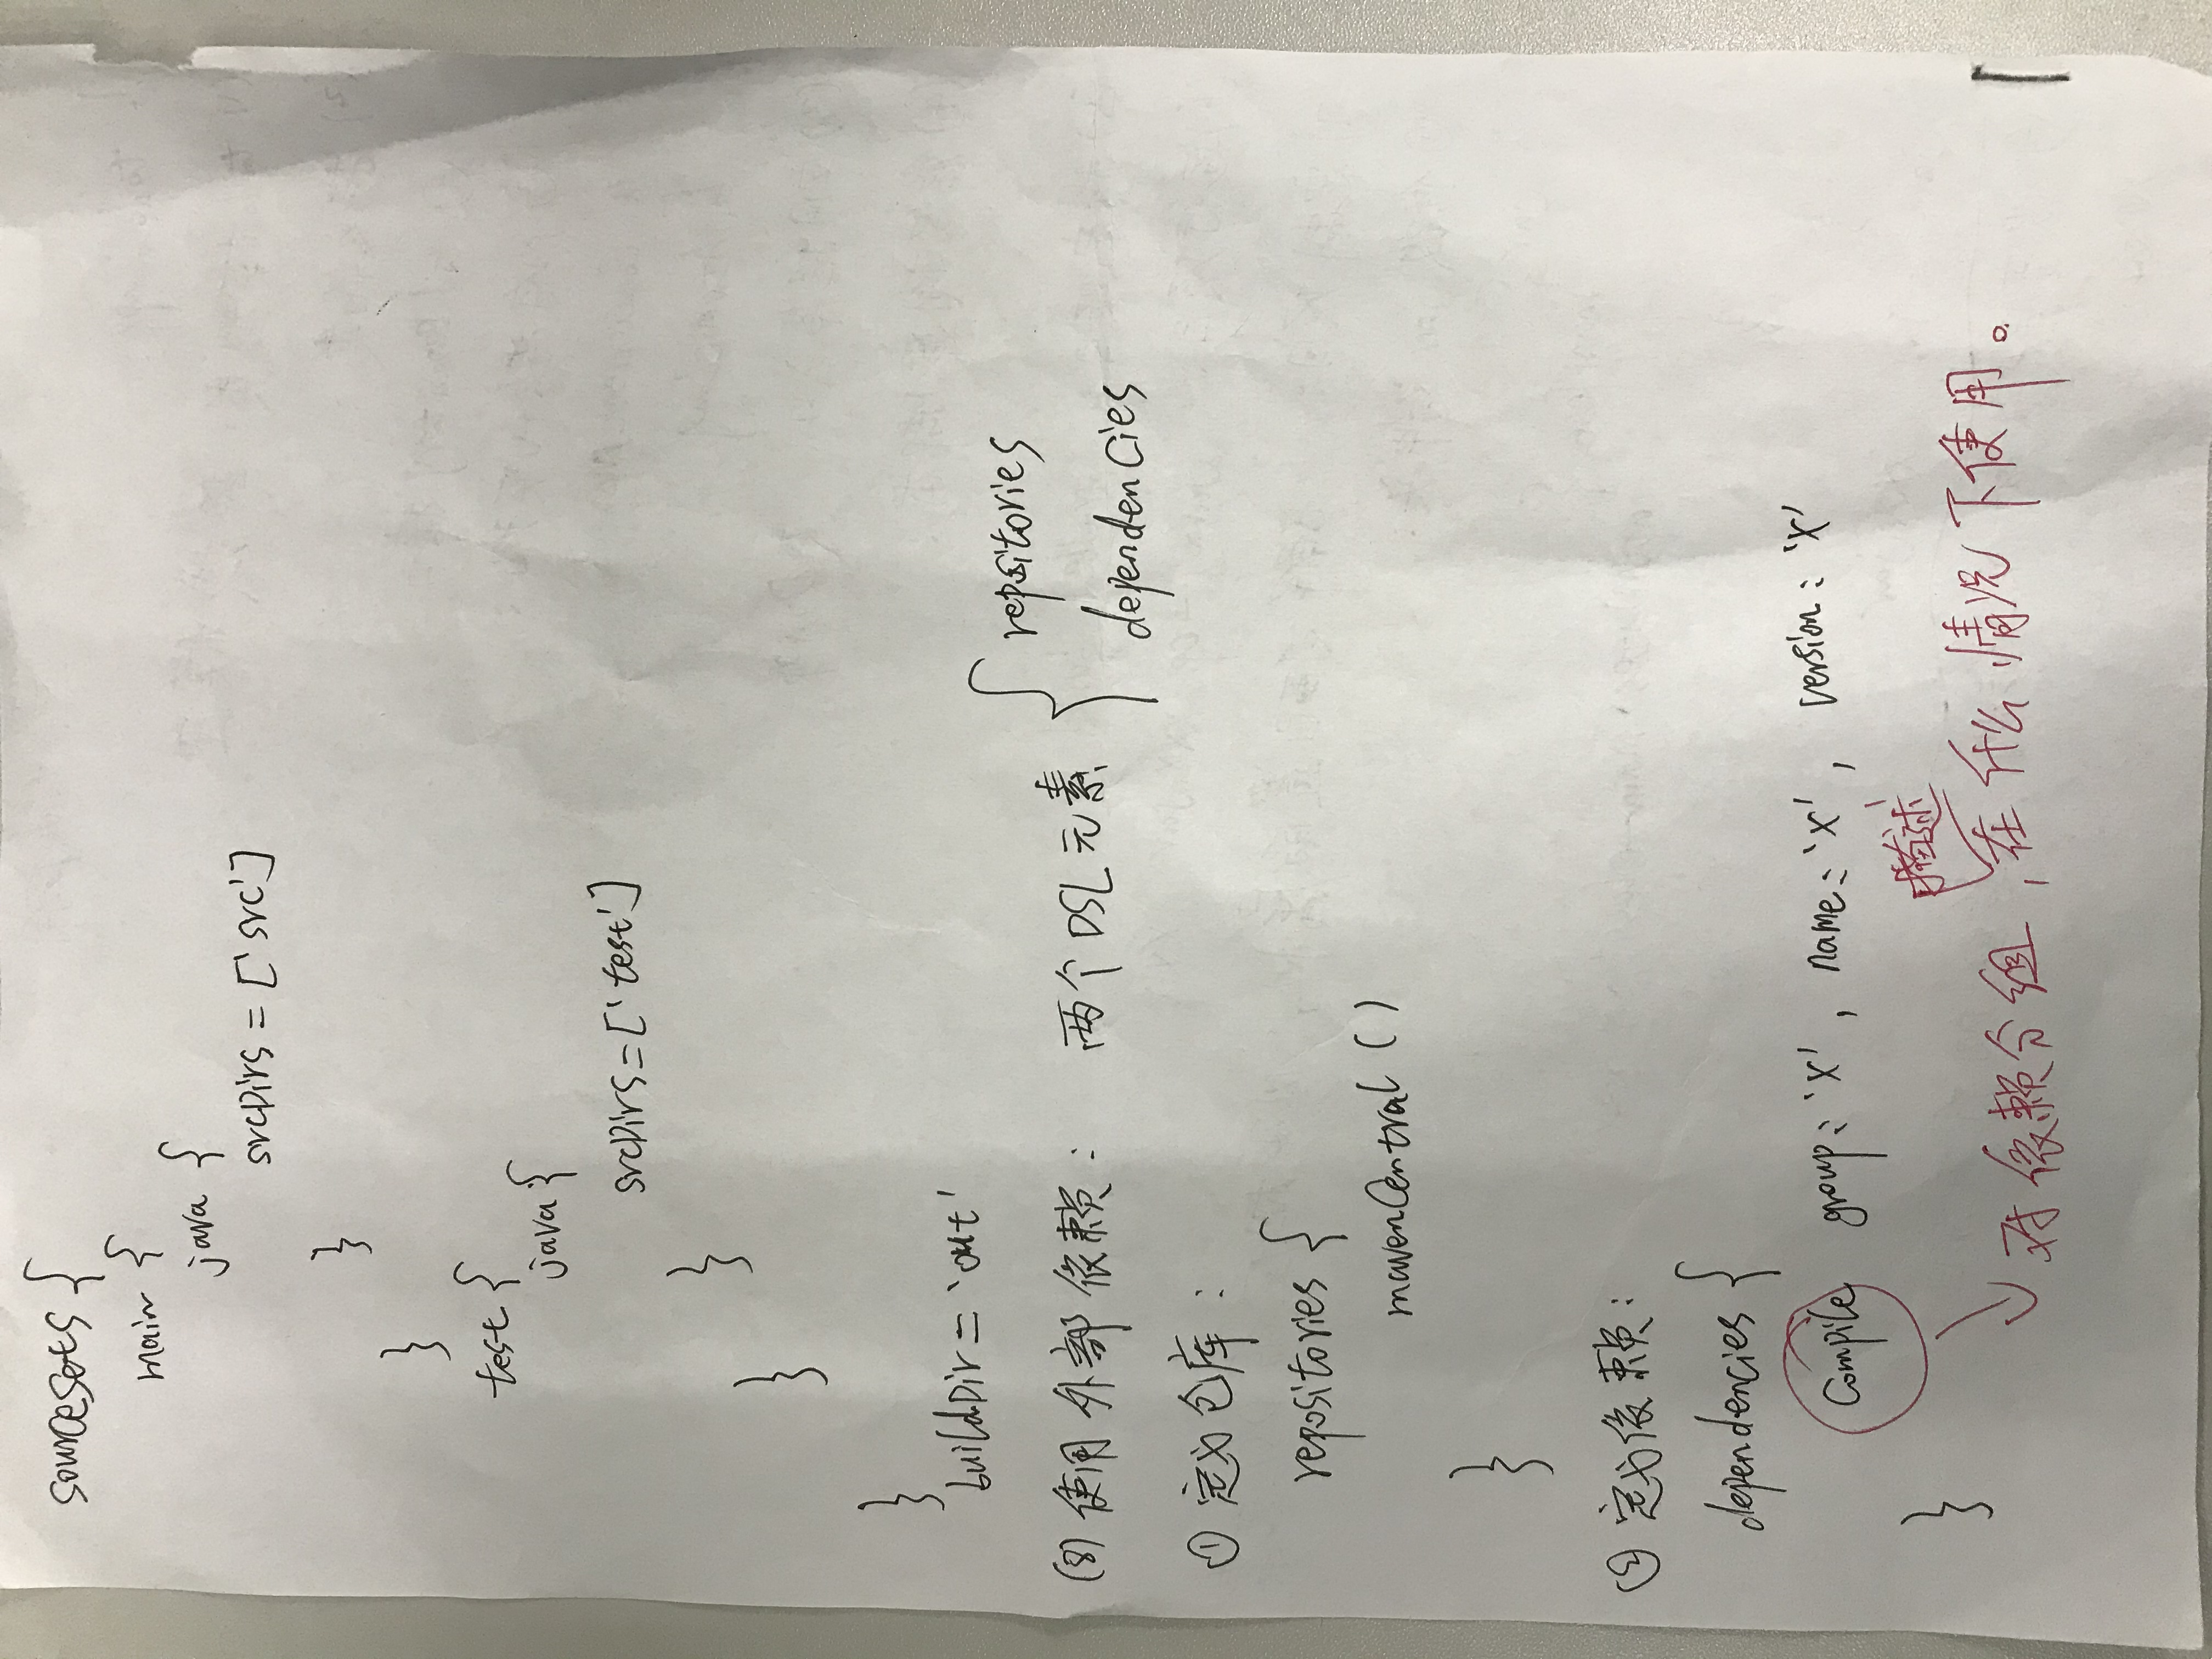 sourcesets {
main {
java {
srcDirs = ['src']
}
}
test {
java {
srcDirs = ['test']
}
}
}
buildDir = 'out'
(8) 使用外部依赖： 两个DSL元素 { repositories
dependencies
① 定义仓库：
repositories {
mavenCentral ()
}
② 定义依赖：
dependencies {
Compile group: 'X', name: 'X', version: 'X'
}
描述
对依赖分组，在什么情况下使用。